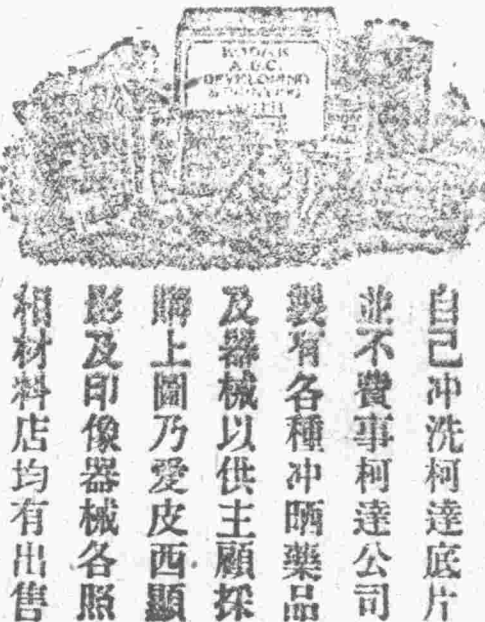 KODAK
A.B.C.
DEVELOPING
& PRINTING
自己冲洗柯達底片
並不費事柯達公司
製有各種冲晒藥品
及器械以供主顧採
購上圖乃愛皮西顯
影及印像器械各照
相材料店均有出售